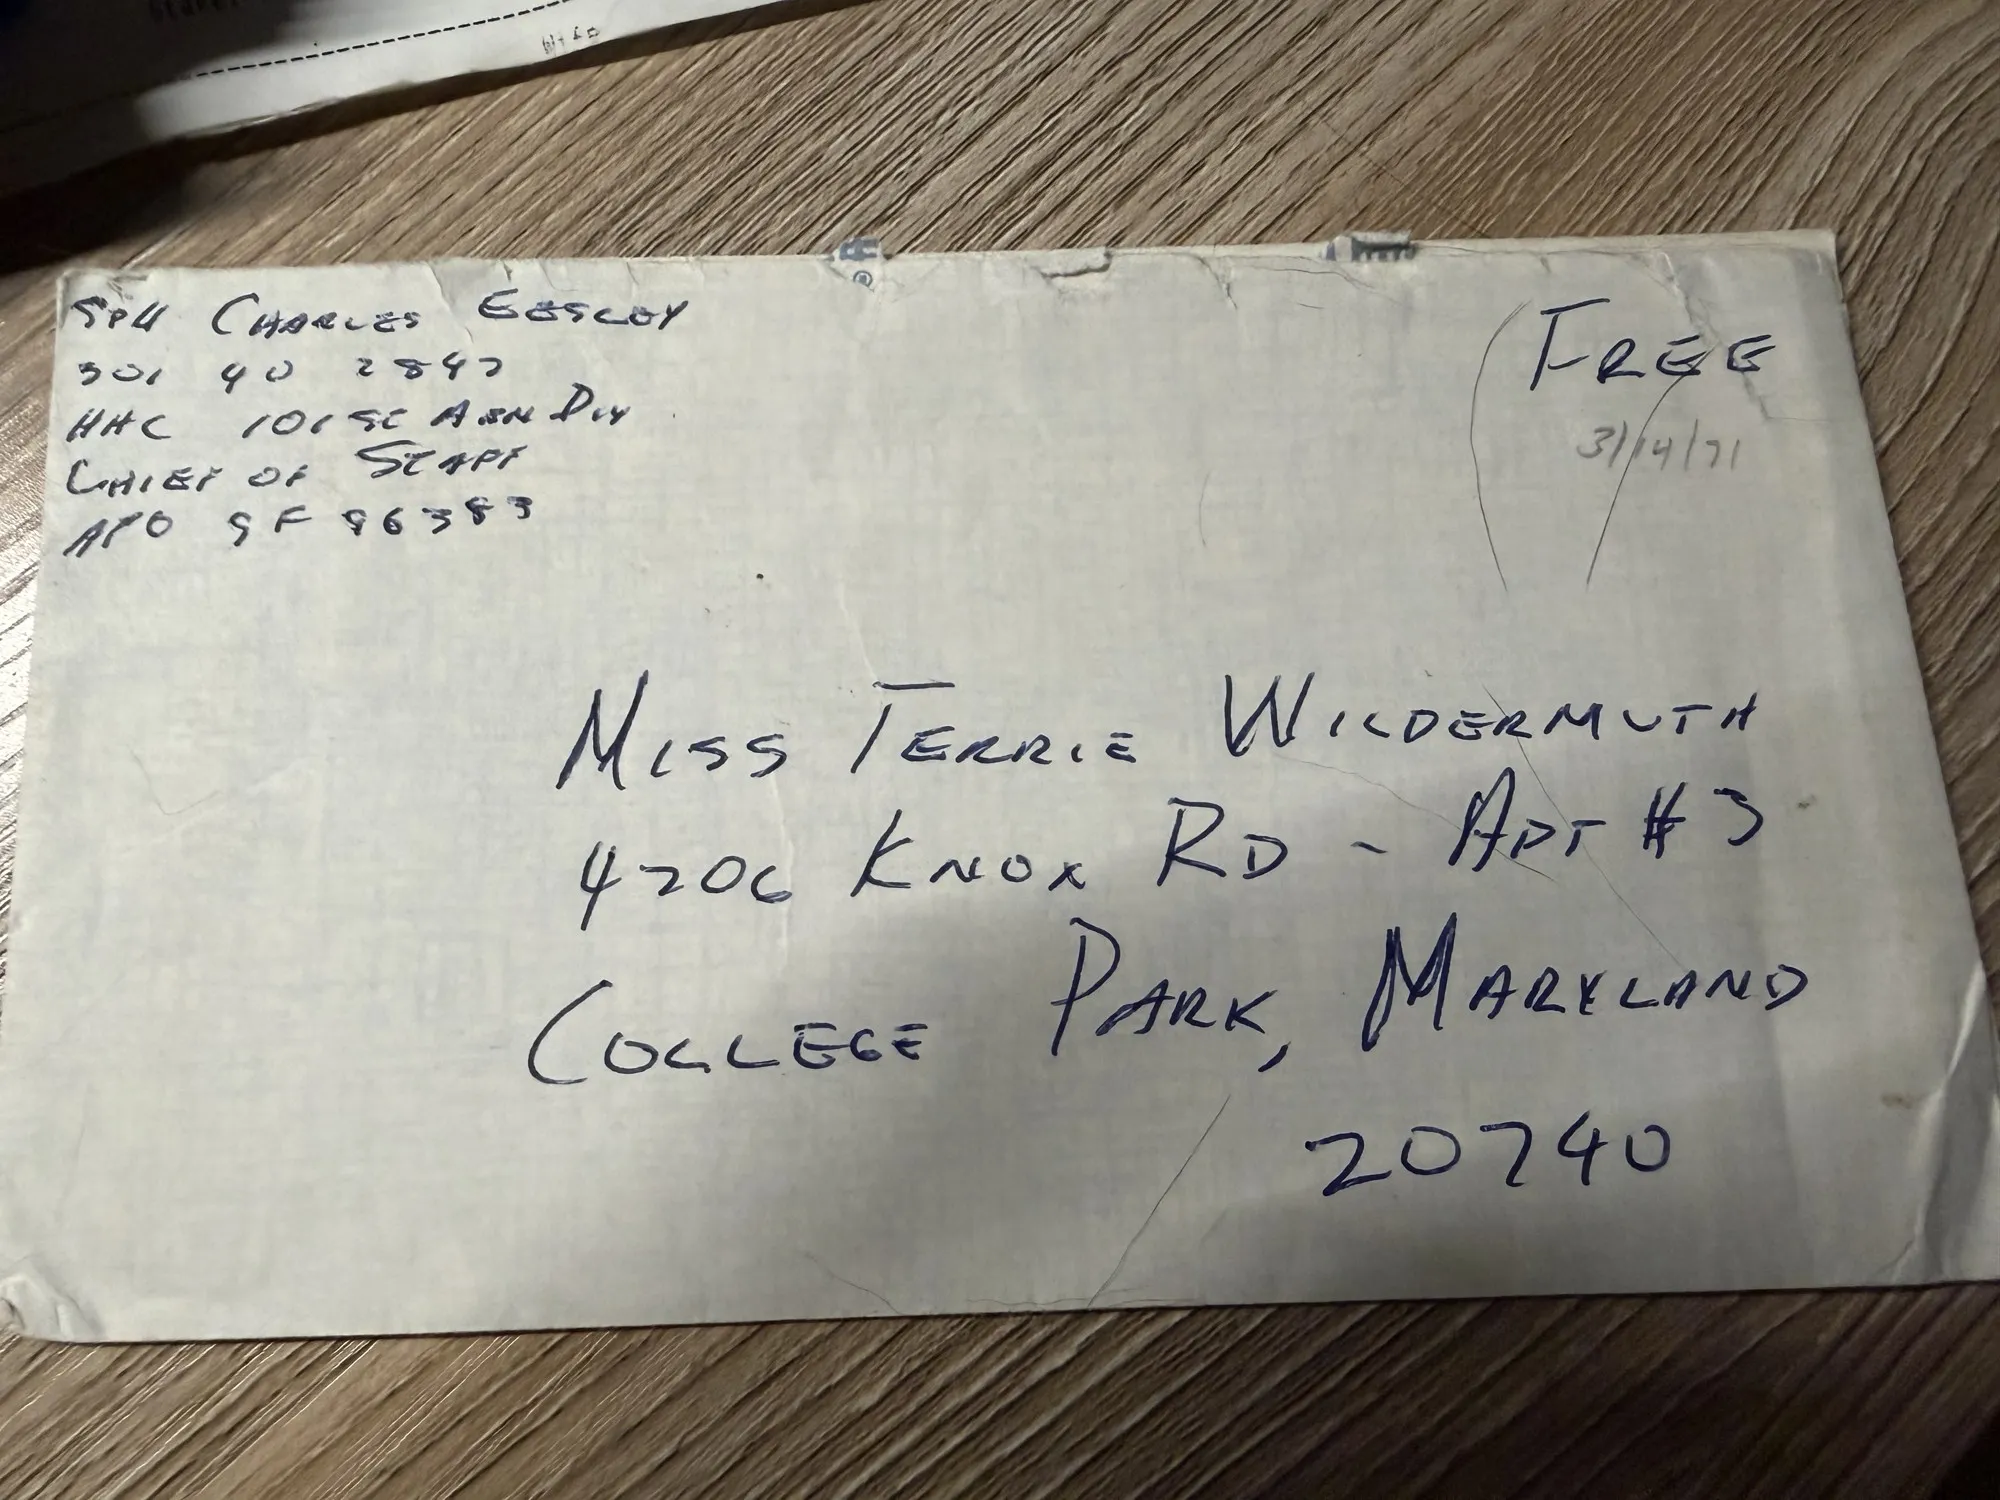 SP4 CHARLES EESLEY
301 40 2847
HHC 101ST ABN DIV
CHIEF OF STAFF
APO SF 96383
FREE
3/14/71
MISS TERRIE WILDERMUTH
4206 KNOX RD - APT #3
COLLEGE PARK, MARYLAND
20740